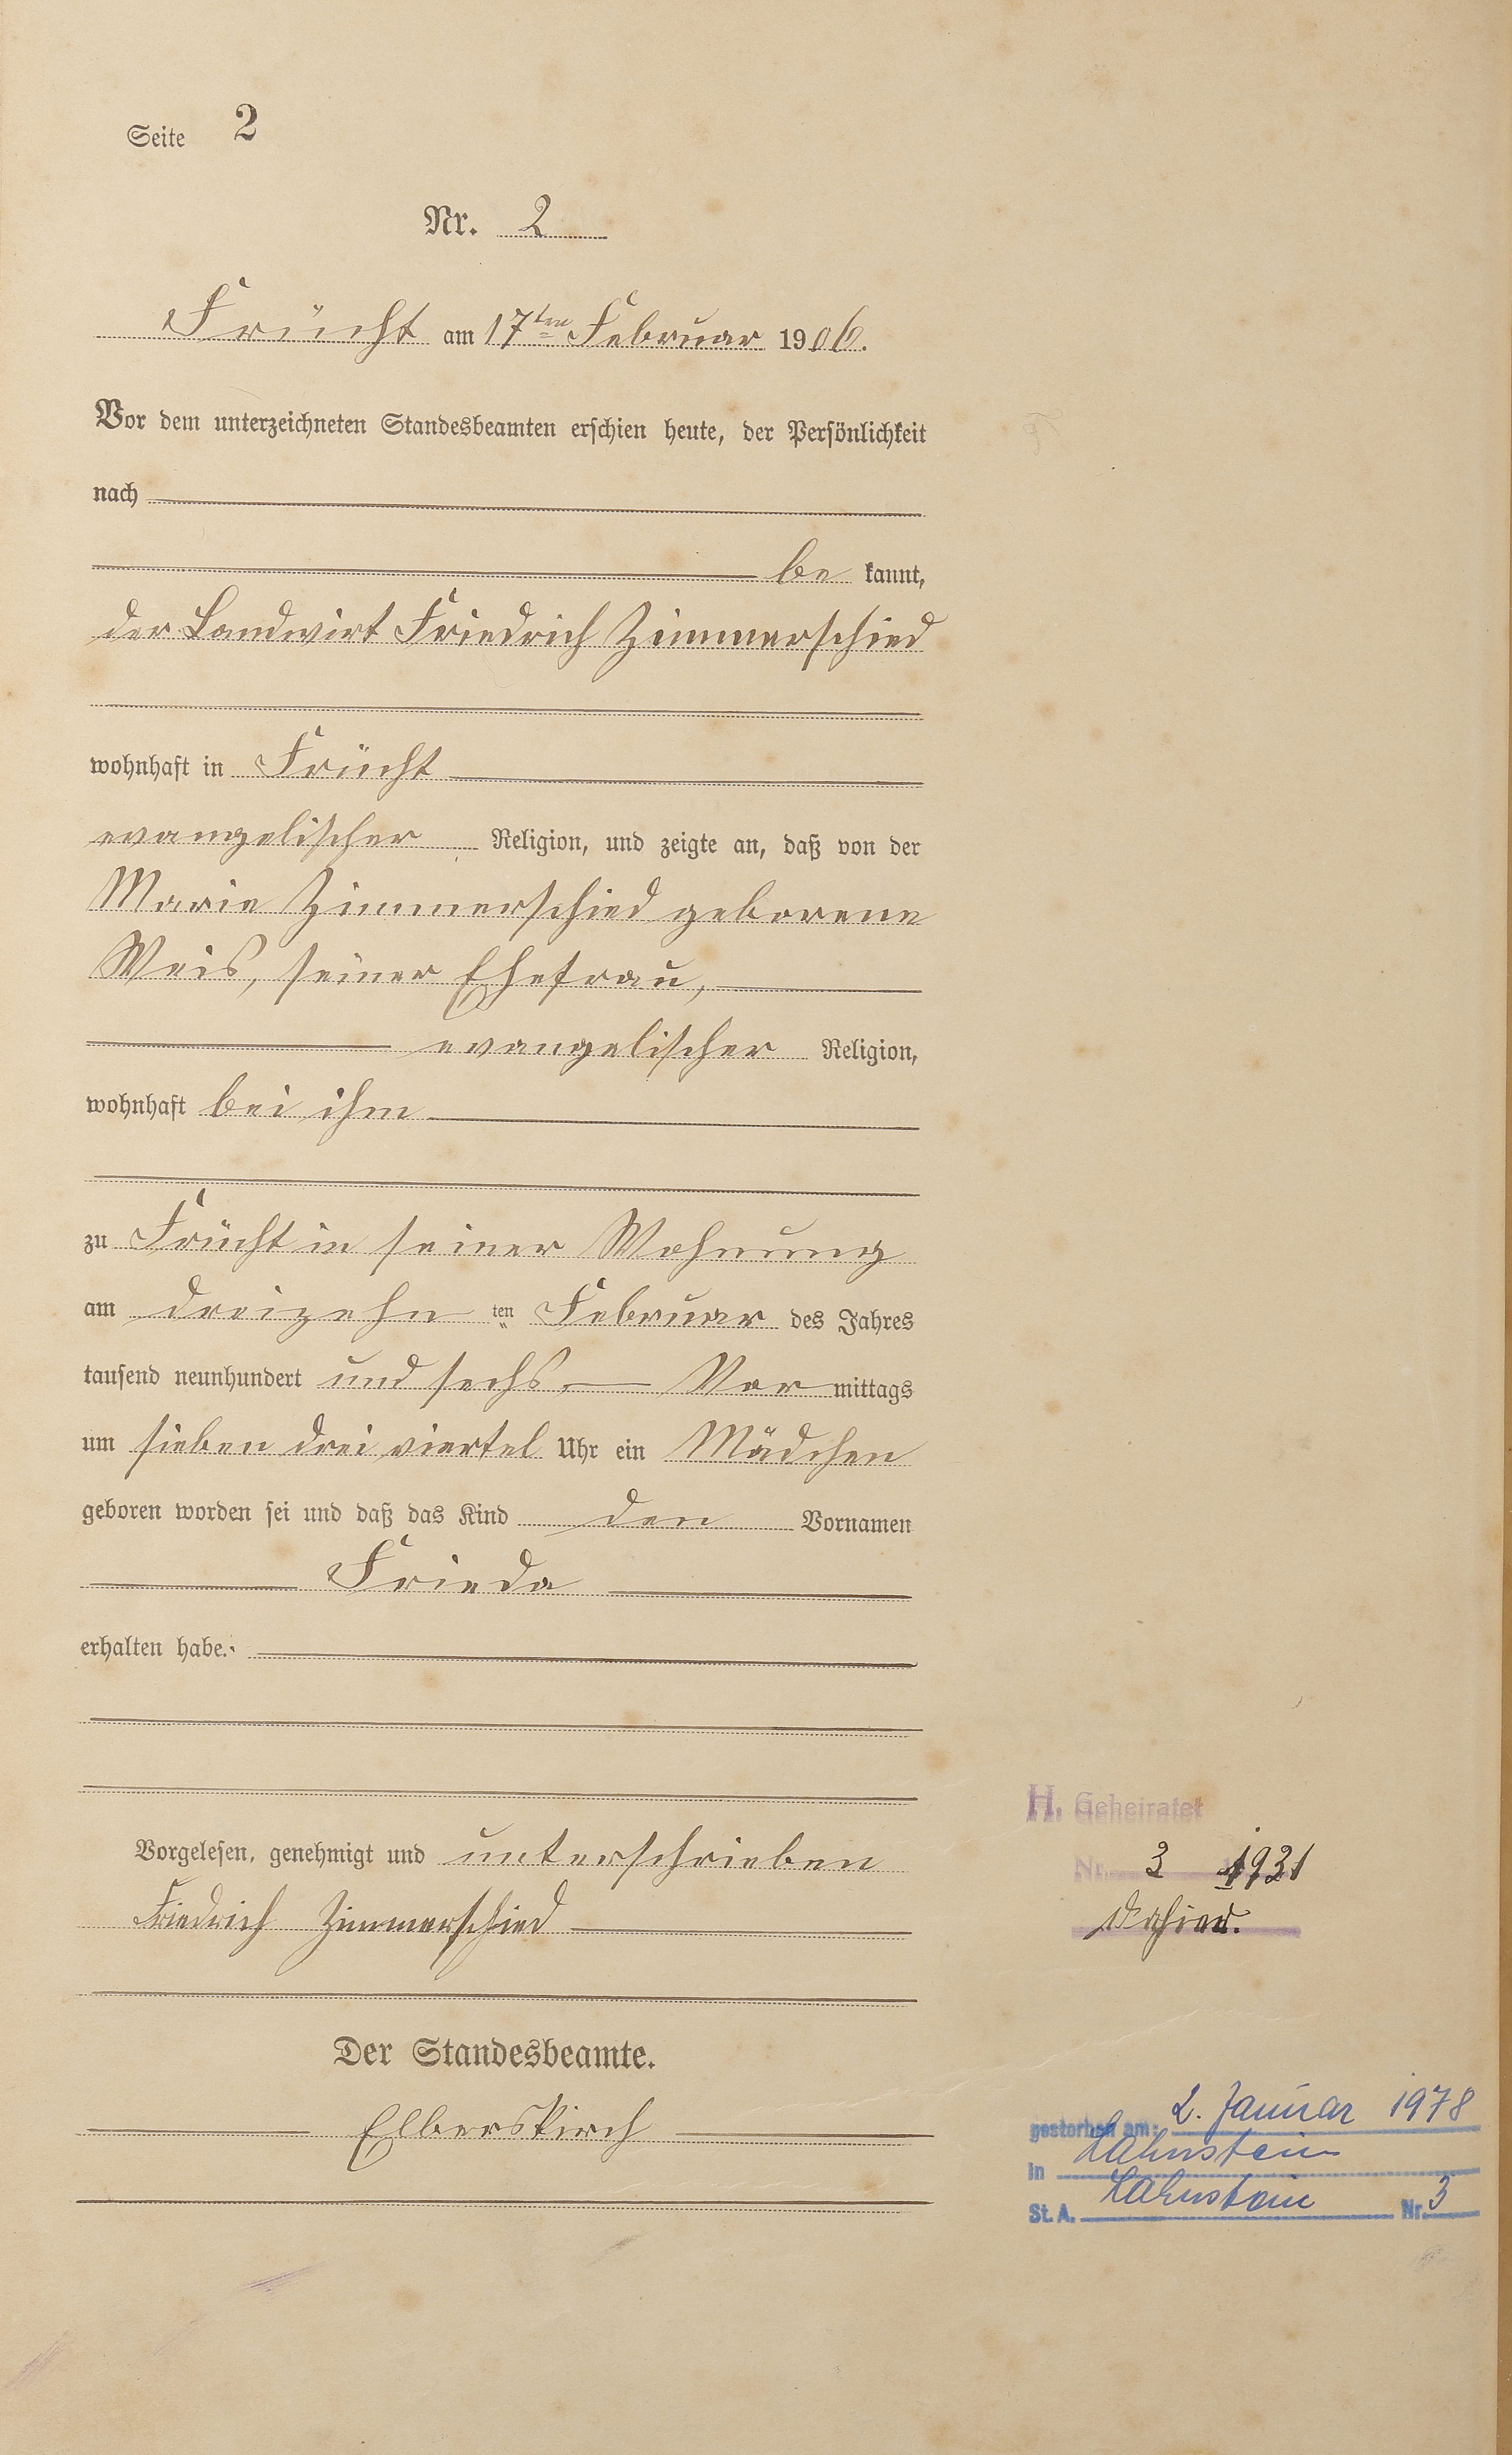 Seite 2
Nr. 2
Frücht am 17ten Februar 1906.
Vor dem unterzeichneten Standesbeamten erschien heute, der Persönlichkeit
nach
be kannt,
der Landwirt Friedrich Zimmerschied
wohnhaft in Frücht
evangelischer Religion, und zeigte an, daß von der
Marie Zimmerschied geborene
Weis, seiner Ehefrau,
evangelischer Religion,
wohnhaft bei ihm
zu Frücht in seiner Wohnung
am dreizehn ten Februar des Jahres
tausend neunhundert und sechs Vor mittags
um sieben drei viertel Uhr ein Mädchen
geboren worden sei und daß das Kind den Vornamen
Frieda
erhalten habe.
Vorgelesen, genehmigt und unterschrieben
Friedrich Zimmerschied
Der Standesbeamte.
Elberskirch
H. Geheiratet
Nr. 3 1931
dahier.
gestorben am: 2. Januar 1978
in Lahnstein
St. A. Lahnstein Nr. 3